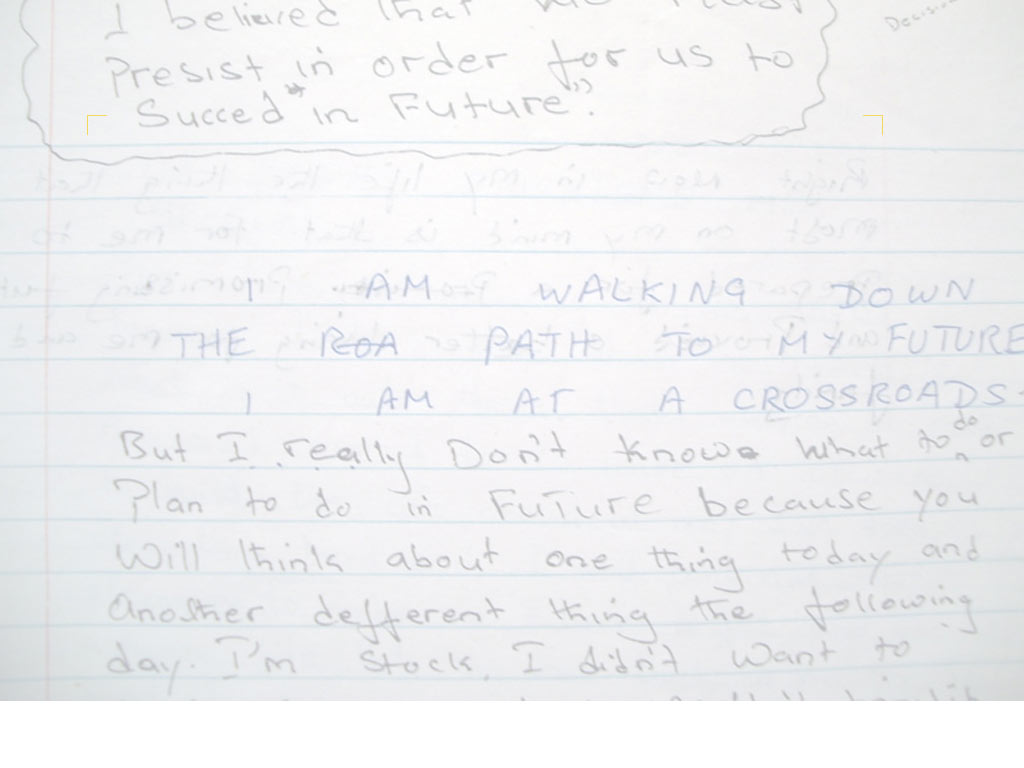 I believed that we must
Decision
Presist in order for us to
Succed in Future".
I AM WALKING DOWN
THE ROA PATH TO MY FUTURE
I AM AT A CROSSROADS.
But I really Don't know what to do or
Plan to do in Future because you
Will think about one thing today and
Another defferent thing the following
day. I'm stock, I didn't want to